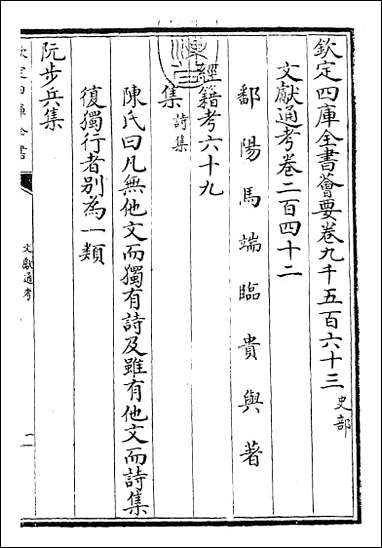 欽定四庫全書薈要卷九千五百六十三史部
文獻通考卷二百四十二
鄱陽馬端臨貴與著
經籍考六十九
集詩集
陳氏曰凡無他文而獨有詩及雖有他文而詩集
復獨行者別為一類
阮步兵集
欽定四庫全書
文獻通考
一